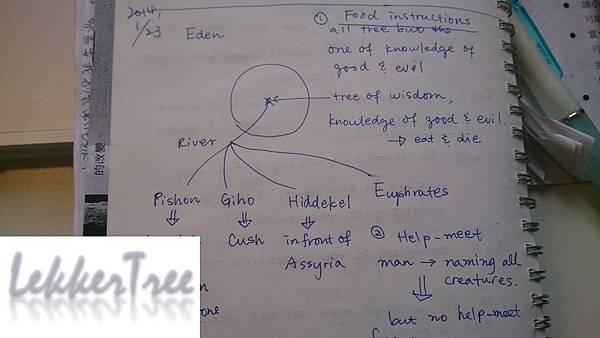 2014,
1/23
Eden
① Food instructions
all tree but the
one of knowledge of
good & evil
tree of wisdom,
knowledge of good & evil.
→ eat & die
River
Pishon Giho Hiddekel Euphrates
⇓ ⇓ ⇓
Cush in front of
Assyria
② Help-meet
man → naming all
creatures.
⇓
but no help-meet
one
LekkerTree
的改變。